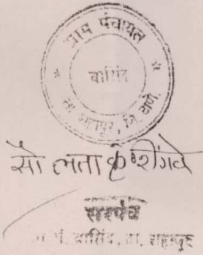 ग्राम पंचायत
वासिंद
ता. शहापूर, जि. ठाणे.
सौ लता कृ शिंगवे
सरपंच
ग्रा. पं. वासिंद, ता. शहापूर